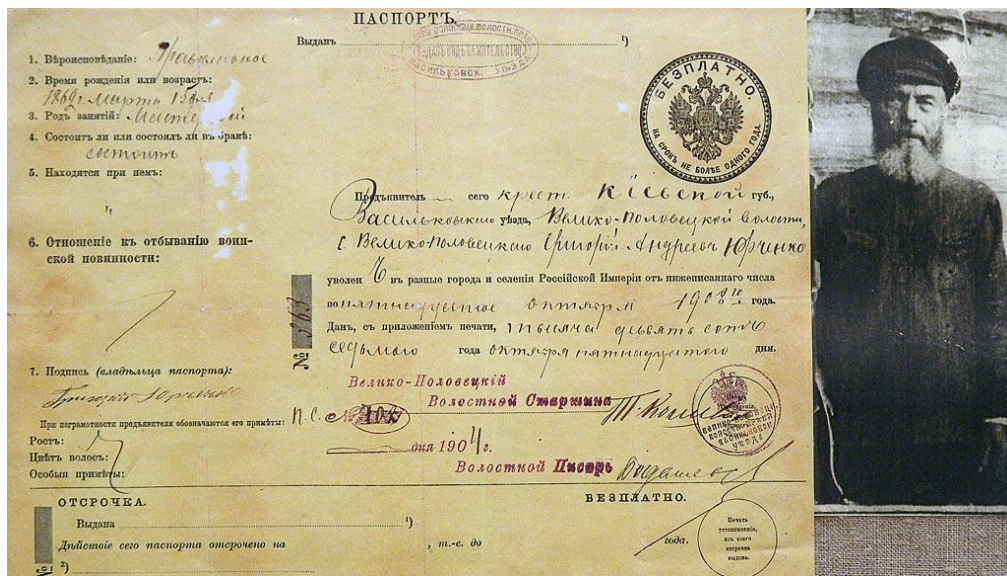 ПАСПОРТЪ.
Выданъ ¹)
1. Вѣроисповѣданіе: Православное
2. Время рожденія или возрастъ:
1869 г. марта
3. Родъ занятій:
4. Состоитъ ли или состоялъ ли въ бракѣ:
состоитъ
5. Находятся при немъ:
"
6. Отношеніе къ отбыванію воин-
ской повинности:
7. Подпись (владѣльца паспорта):
Григорій Юрченко
При неграмотности предъявителя обозначаются его примѣты:
Ростъ:
Цвѣтъ волосъ:
Особыя примѣты:
БЕЗПЛАТНО.
НА СРОКЪ НЕ БОЛѢЕ ОДНОГО ГОДА.
Предъявитель сего крест. Кіевской губ.,
Васильковскаго уѣзда, Велико-Половецкой волости,
с. Велико-Половецкаго Григорій Андреевъ Юрченко
уволенъ въ разные города и селенія Россійской Имперіи отъ нижеписаннаго числа
по пятнадцатое октября 1908 года.
Данъ, съ приложеніемъ печати, тысяча девять сотъ
седьмого года октября пятнадцатого дня.
№ 363
Велико-Половецкій
Волостной Старшина
П. С. №
дня 190 г.
Волостной Писарь
ОТСРОЧКА.
БЕЗПЛАТНО.
Выдана ¹)
Дѣйствіе сего паспорта отсрочено на , т.-е. до года.
№ ²)
Печать
установленія,
изъ коего
отсрочка
выдана.